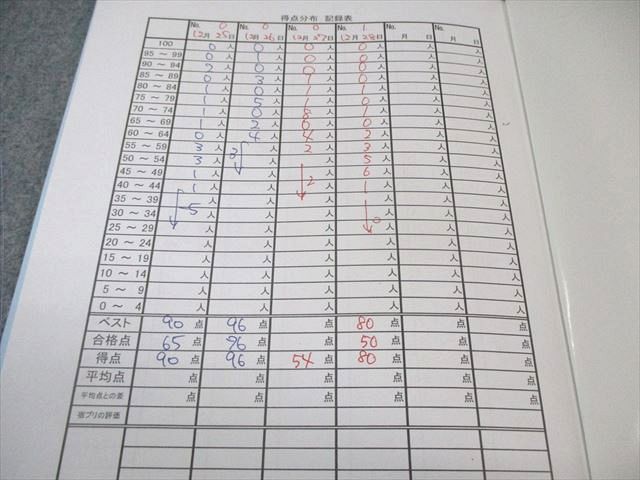 得点分布 記録表
No. 0 No. 0 No. 0 No. 1 No. No.
12月 25日 12月 26日 12月 27日 12月 28日 月 日 月 日
100 0人 0人 0人 0人 人 人
95 ～ 99 0人 1人 0人 0人 人 人
90 ～ 94 2人 0人 0人 0人 人 人
85 ～ 89 0人 3人 人 0人 人 人
80 ～ 84 1人 0人 1人 1人 人 人
75 ～ 79 1人 5人 1人 0人 人 人
70 ～ 74 1人 0人 8人 1人 人 人
65 ～ 69 1人 2人 0人 0人 人 人
60 ～ 64 0人 4人 4人 2人 人 人
55 ～ 59 3人 3人 2人 3人 人 人
50 ～ 54 3人 人 人 5人 人 人
45 ～ 49 1人 人 人 6人 人 人
40 ～ 44 1人 人 2人 1人 人 人
35 ～ 39 人 人 人 人 人 人
30 ～ 34 5人 人 人 0人 人 人
25 ～ 29 人 人 人 人 人 人
20 ～ 24 人 人 人 人 人 人
15 ～ 19 人 人 人 人 人 人
10 ～ 14 人 人 人 人 人 人
5 ～ 9 人 人 人 人 人 人
0 ～ 4 人 人 人 人 人 人
ベスト 90点 96点 点 80点 点 点
合格点 65点 96点 点 50点 点 点
得点 90点 96点 54点 80点 点 点
平均点 点 点 点 点 点 点
平均点との差 点 点 点 点 点 点
宿プリの評価